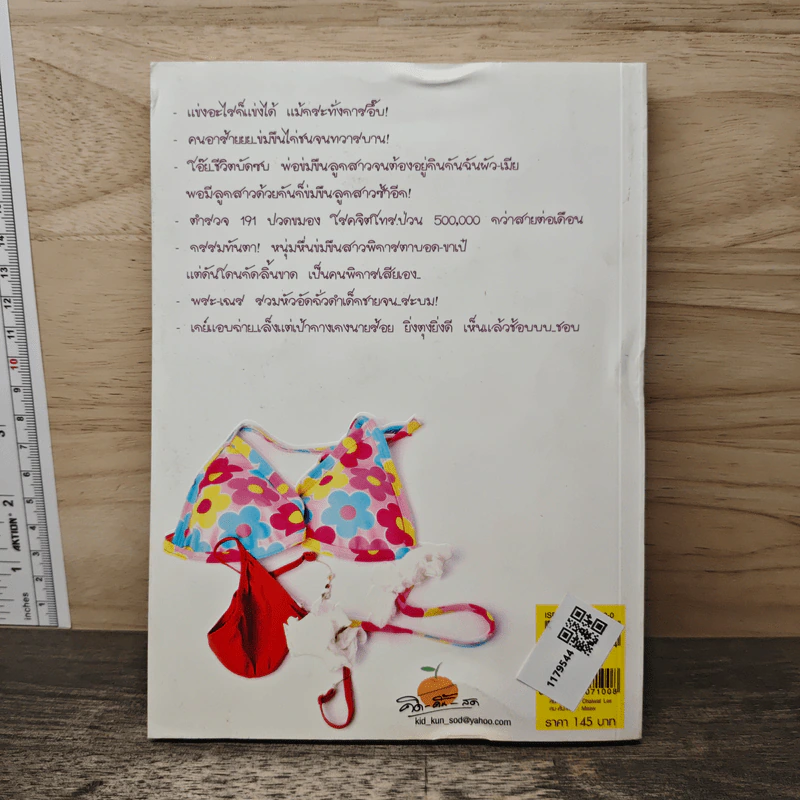 - แข่งอะไรก็แข่งได้ แม้กระทั่งการอึ๊บ!
- คนอาร้ายยย..ข่มขืนไก่ชนจนทวารบาน!
- โอ๊ย..ชีวิตบัดซบ พ่อข่มขืนลูกสาวจนต้องอยู่กินกันฉันผัว-เมีย
พอมีลูกสาวด้วยกันก็ข่มขืนลูกสาวซ้ำอีก!
- ตำรวจ 191 ปวดขมอง โรคจิตโทร.ป่วน 500,000 กว่าสายต่อเดือน
- กรรมทันตา! หนุ่มหื่นข่มขืนสาวพิการตาบอด-ขาเป๋
แต่ดันโดนกัดลิ้นขาด เป็นคนพิการเสียเอง..
- พระ-เณร รวมหัวอัดถั่วดำเด็กชายจน..ระบม!
- เกย์แอบถ่าย..เล็งแต่เป้ากางเกงนายร้อย ยิ่งตุงยิ่งดี เห็นแล้วช้อบบบ..ชอบ
คิด-คื้น-สด
kid_kun_sod@yahoo.com
1179544
071008
Chaiwat Lee
ราคา 145 บาท
inches
AKTION